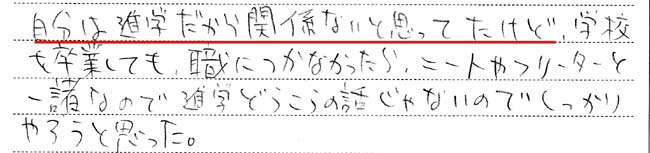 自分は進学だから関係ないと思ってたけど、学校
を卒業しても、職につかなかったら、ニートやフリーターと
一諸なので進学どうこうの話じゃないのでしっかり
やろうと思った。